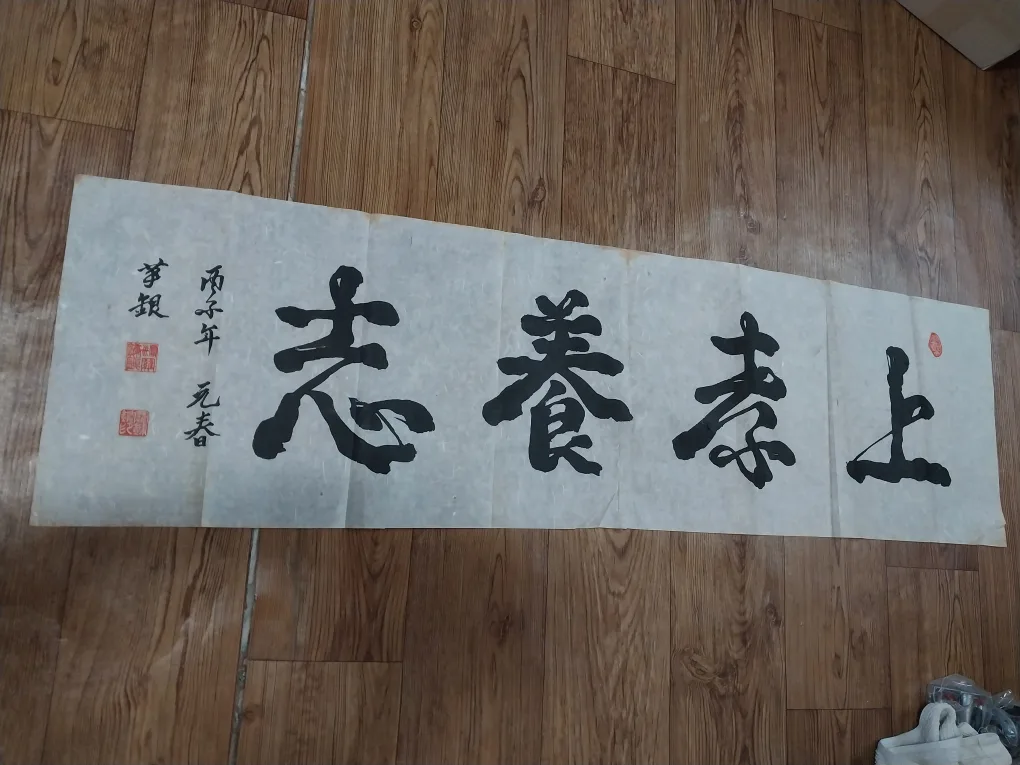 上孝養志
丙子年 元春